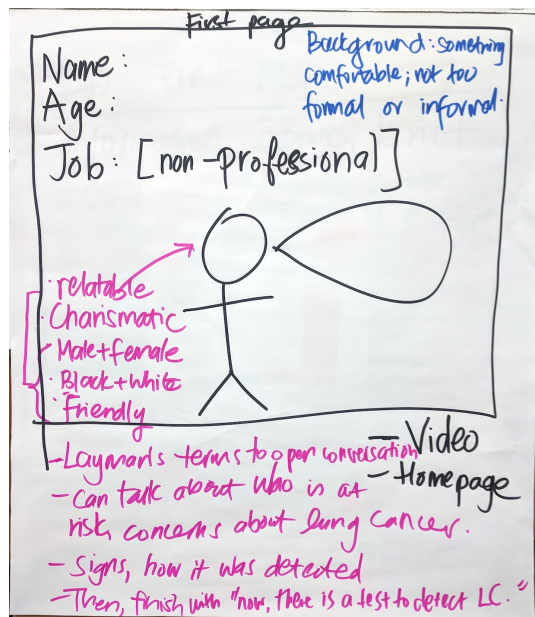 First page
Name:
Age:
Job: [non-professional]
Background: something
comfortable; not too
formal or informal.
· relatable
· Charismatic
· Male+female
· Black+white
· Friendly
- Layman's terms to open conversation
- can talk about who is at
risk concerns about lung cancer.
- Signs, how it was detected
- Then, finish with "now, there is a test to detect LC."
- Video
- Homepage